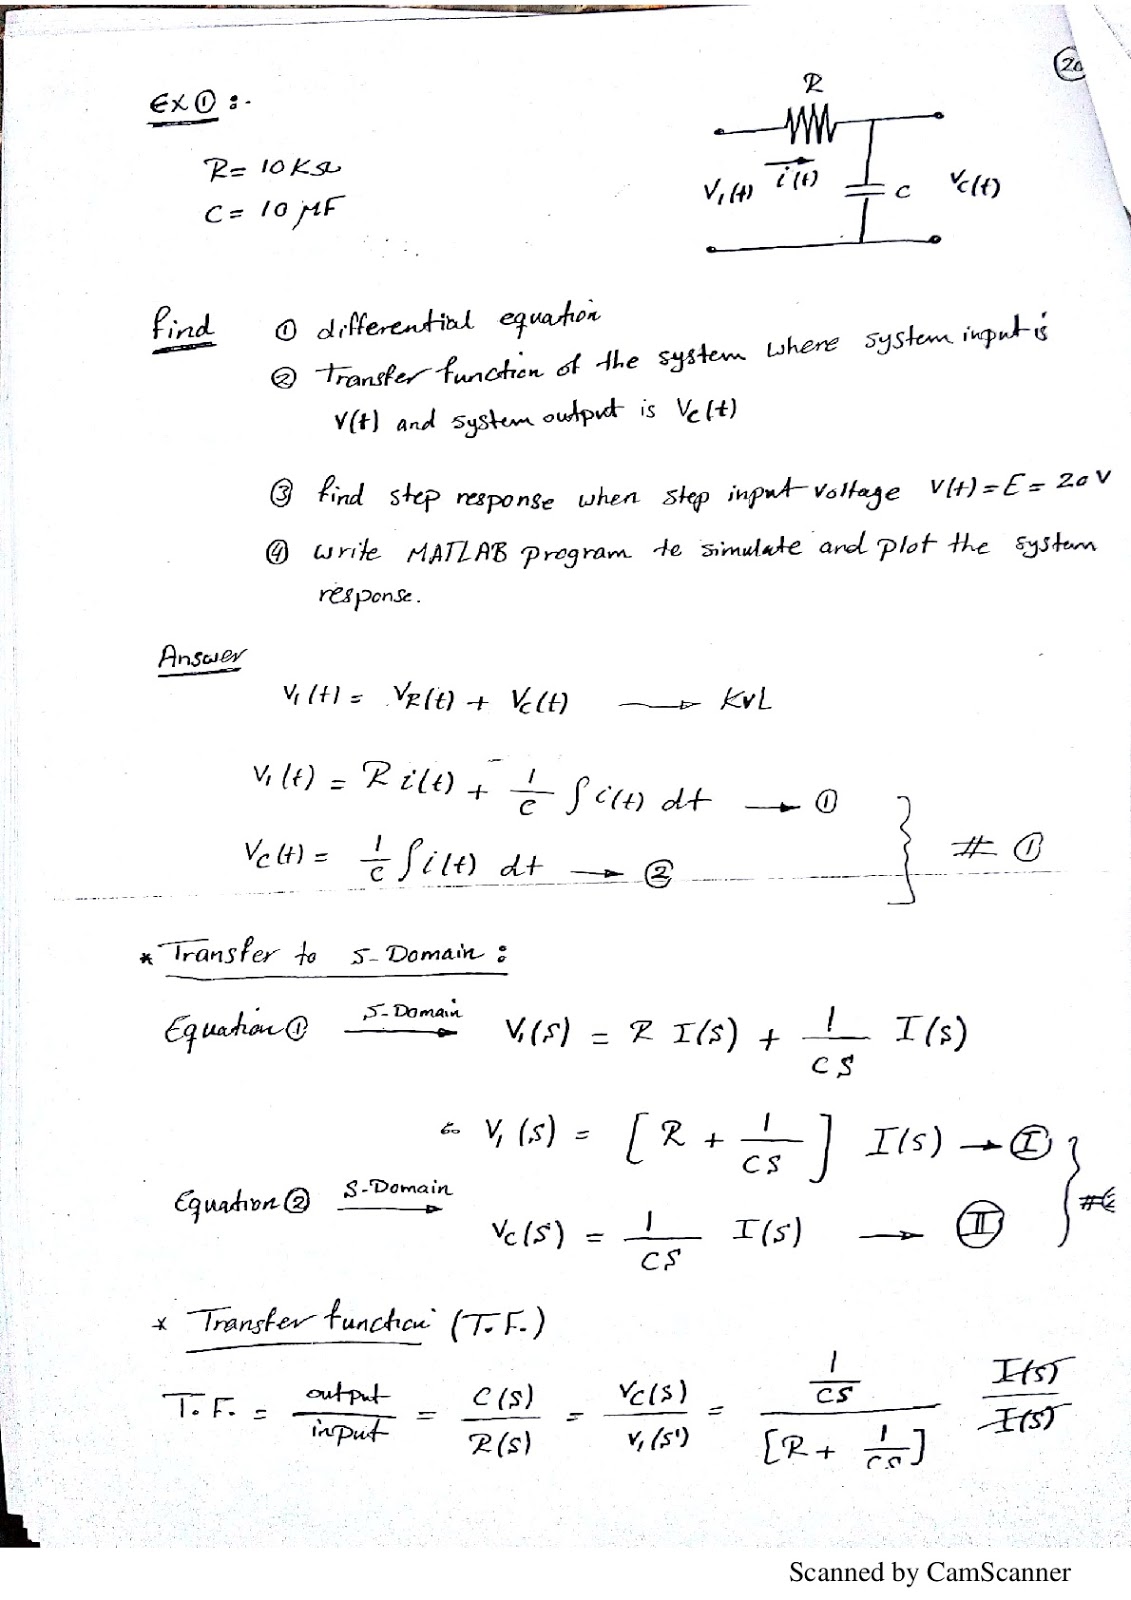 20
EX ① :-
R
R = 10 KΩ
C = 10 μF
V₁(t) i(t) C Vc(t)
find ① differential equation
② Transfer function of the system where system input is
V(t) and system output is Vc(t)
③ find step response when step input voltage V(t) = E = 20 V
④ write MATLAB program to simulate and plot the system
response.
Answer
V₁(t) = VR(t) + Vc(t) → KVL
V₁(t) = R i(t) + 1/C ∫ i(t) dt → ①
Vc(t) = 1/C ∫ i(t) dt → ②
# ①
* Transfer to S-Domain :
Equation ① S-Domain → V₁(S) = R I(S) + 1/CS I(S)
∴ V₁(S) = [R + 1/CS] I(S) → Ⓘ
Equation ② S-Domain → Vc(S) = 1/CS I(S) → Ⓘⓘ
* Transfer function (T.F.)
T.F. = output/input = C(S)/R(S) = Vc(S)/V₁(S) = (1/CS)/[R + 1/CS] I(S)/I(S)
Scanned by CamScanner